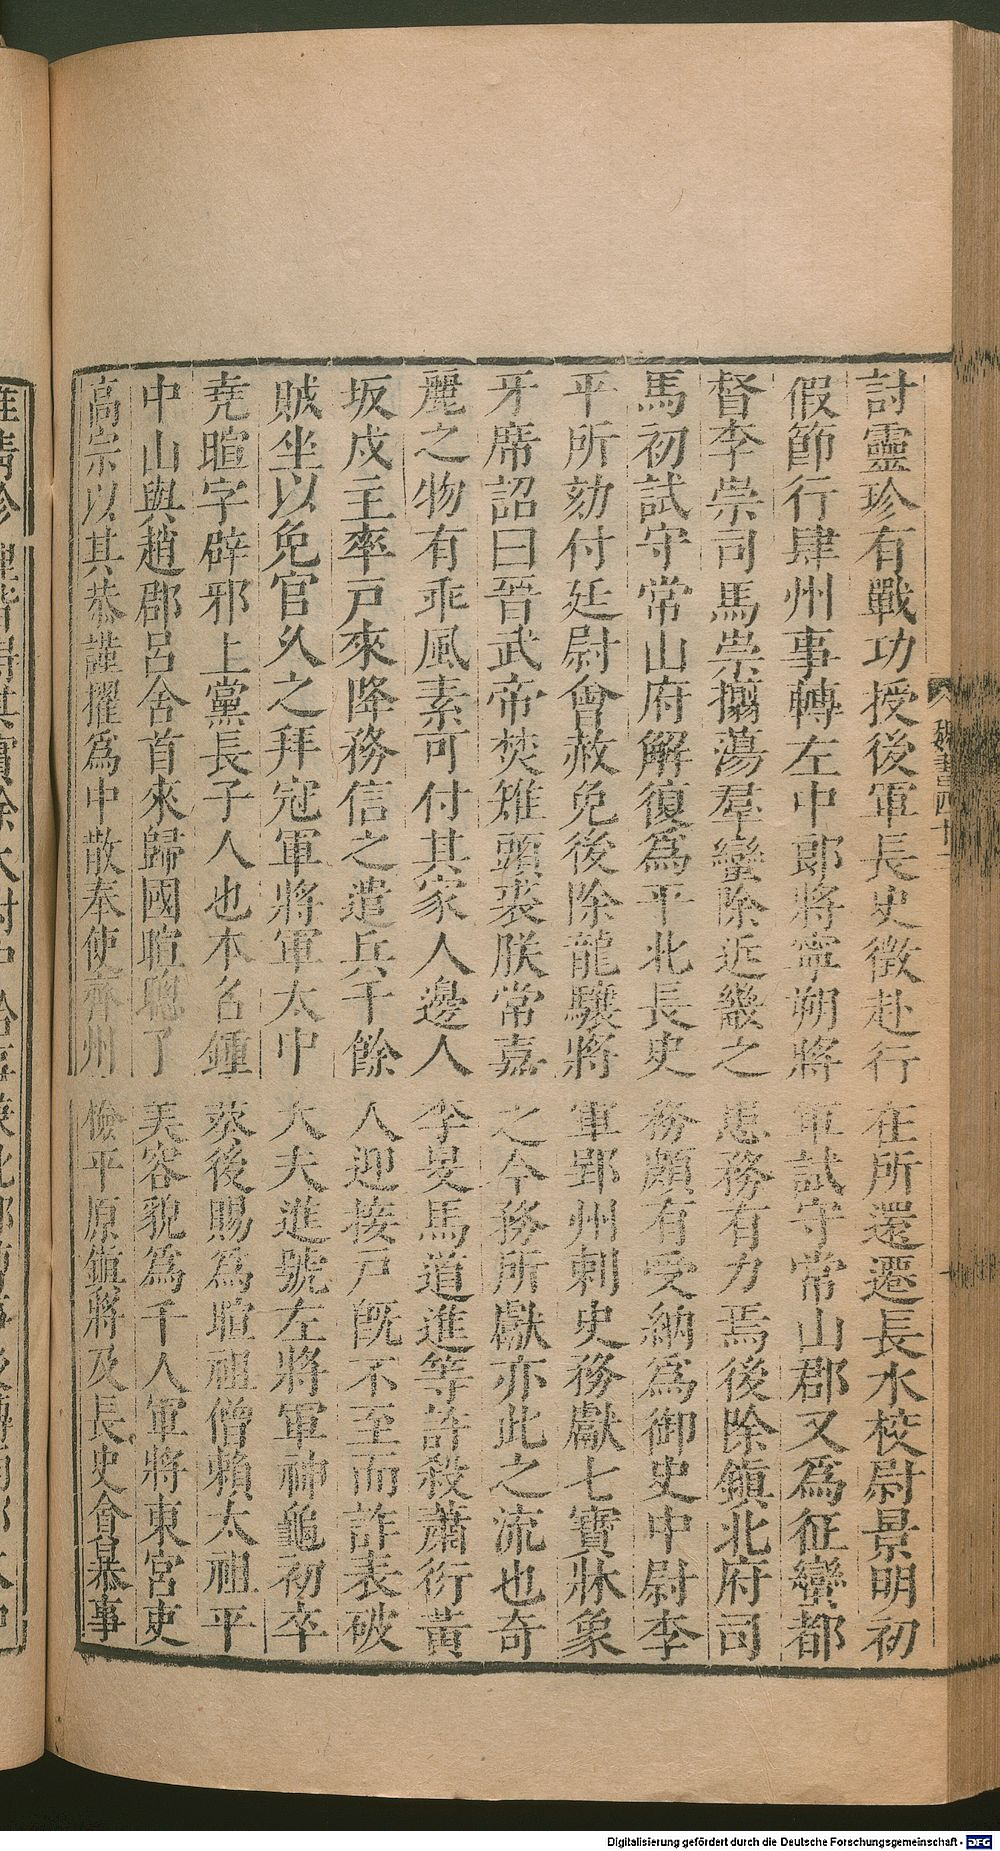 討靈珍有戰功授後軍長史徵赴行在所還遷長水校尉景明初
假節行肆州事轉左中郎將寧朔將軍試守常山郡又爲征蠻都
督李崇司馬崇揃蕩羣蠻除近畿之患務有力焉後除鎭北府司
馬初試守常山府解復爲平北長史務頗有受納爲御史中尉李
平所劾付廷尉會赦免後除龍驤將軍郢州刺史務獻七寶牀象
牙席詔曰晉武帝焚雉頭裘朕常嘉之今務所獻亦此之流也奇
麗之物有乖風素可付其家人邊人李旻馬道進等許殺蕭衍黃
坂戍主率戸來降務信之遣兵千餘人迎接戸旣不至而詐表破
賊坐以免官久之拜冠軍將軍太中大夫進號左將軍神龜初卒
堯暄字辟邪上黨長子人也本名鍾葵後賜爲暄祖僧賴太祖平
中山與趙郡呂舍首來歸國暄聰了美容貌爲千人軍將東宮吏
高宗以其恭謹擢爲中散奉使齊州檢平原鎮將及長史貪暴事
魏書四十二
Digitalisierung gefördert durch die Deutsche Forschungsgemeinschaft - DFG